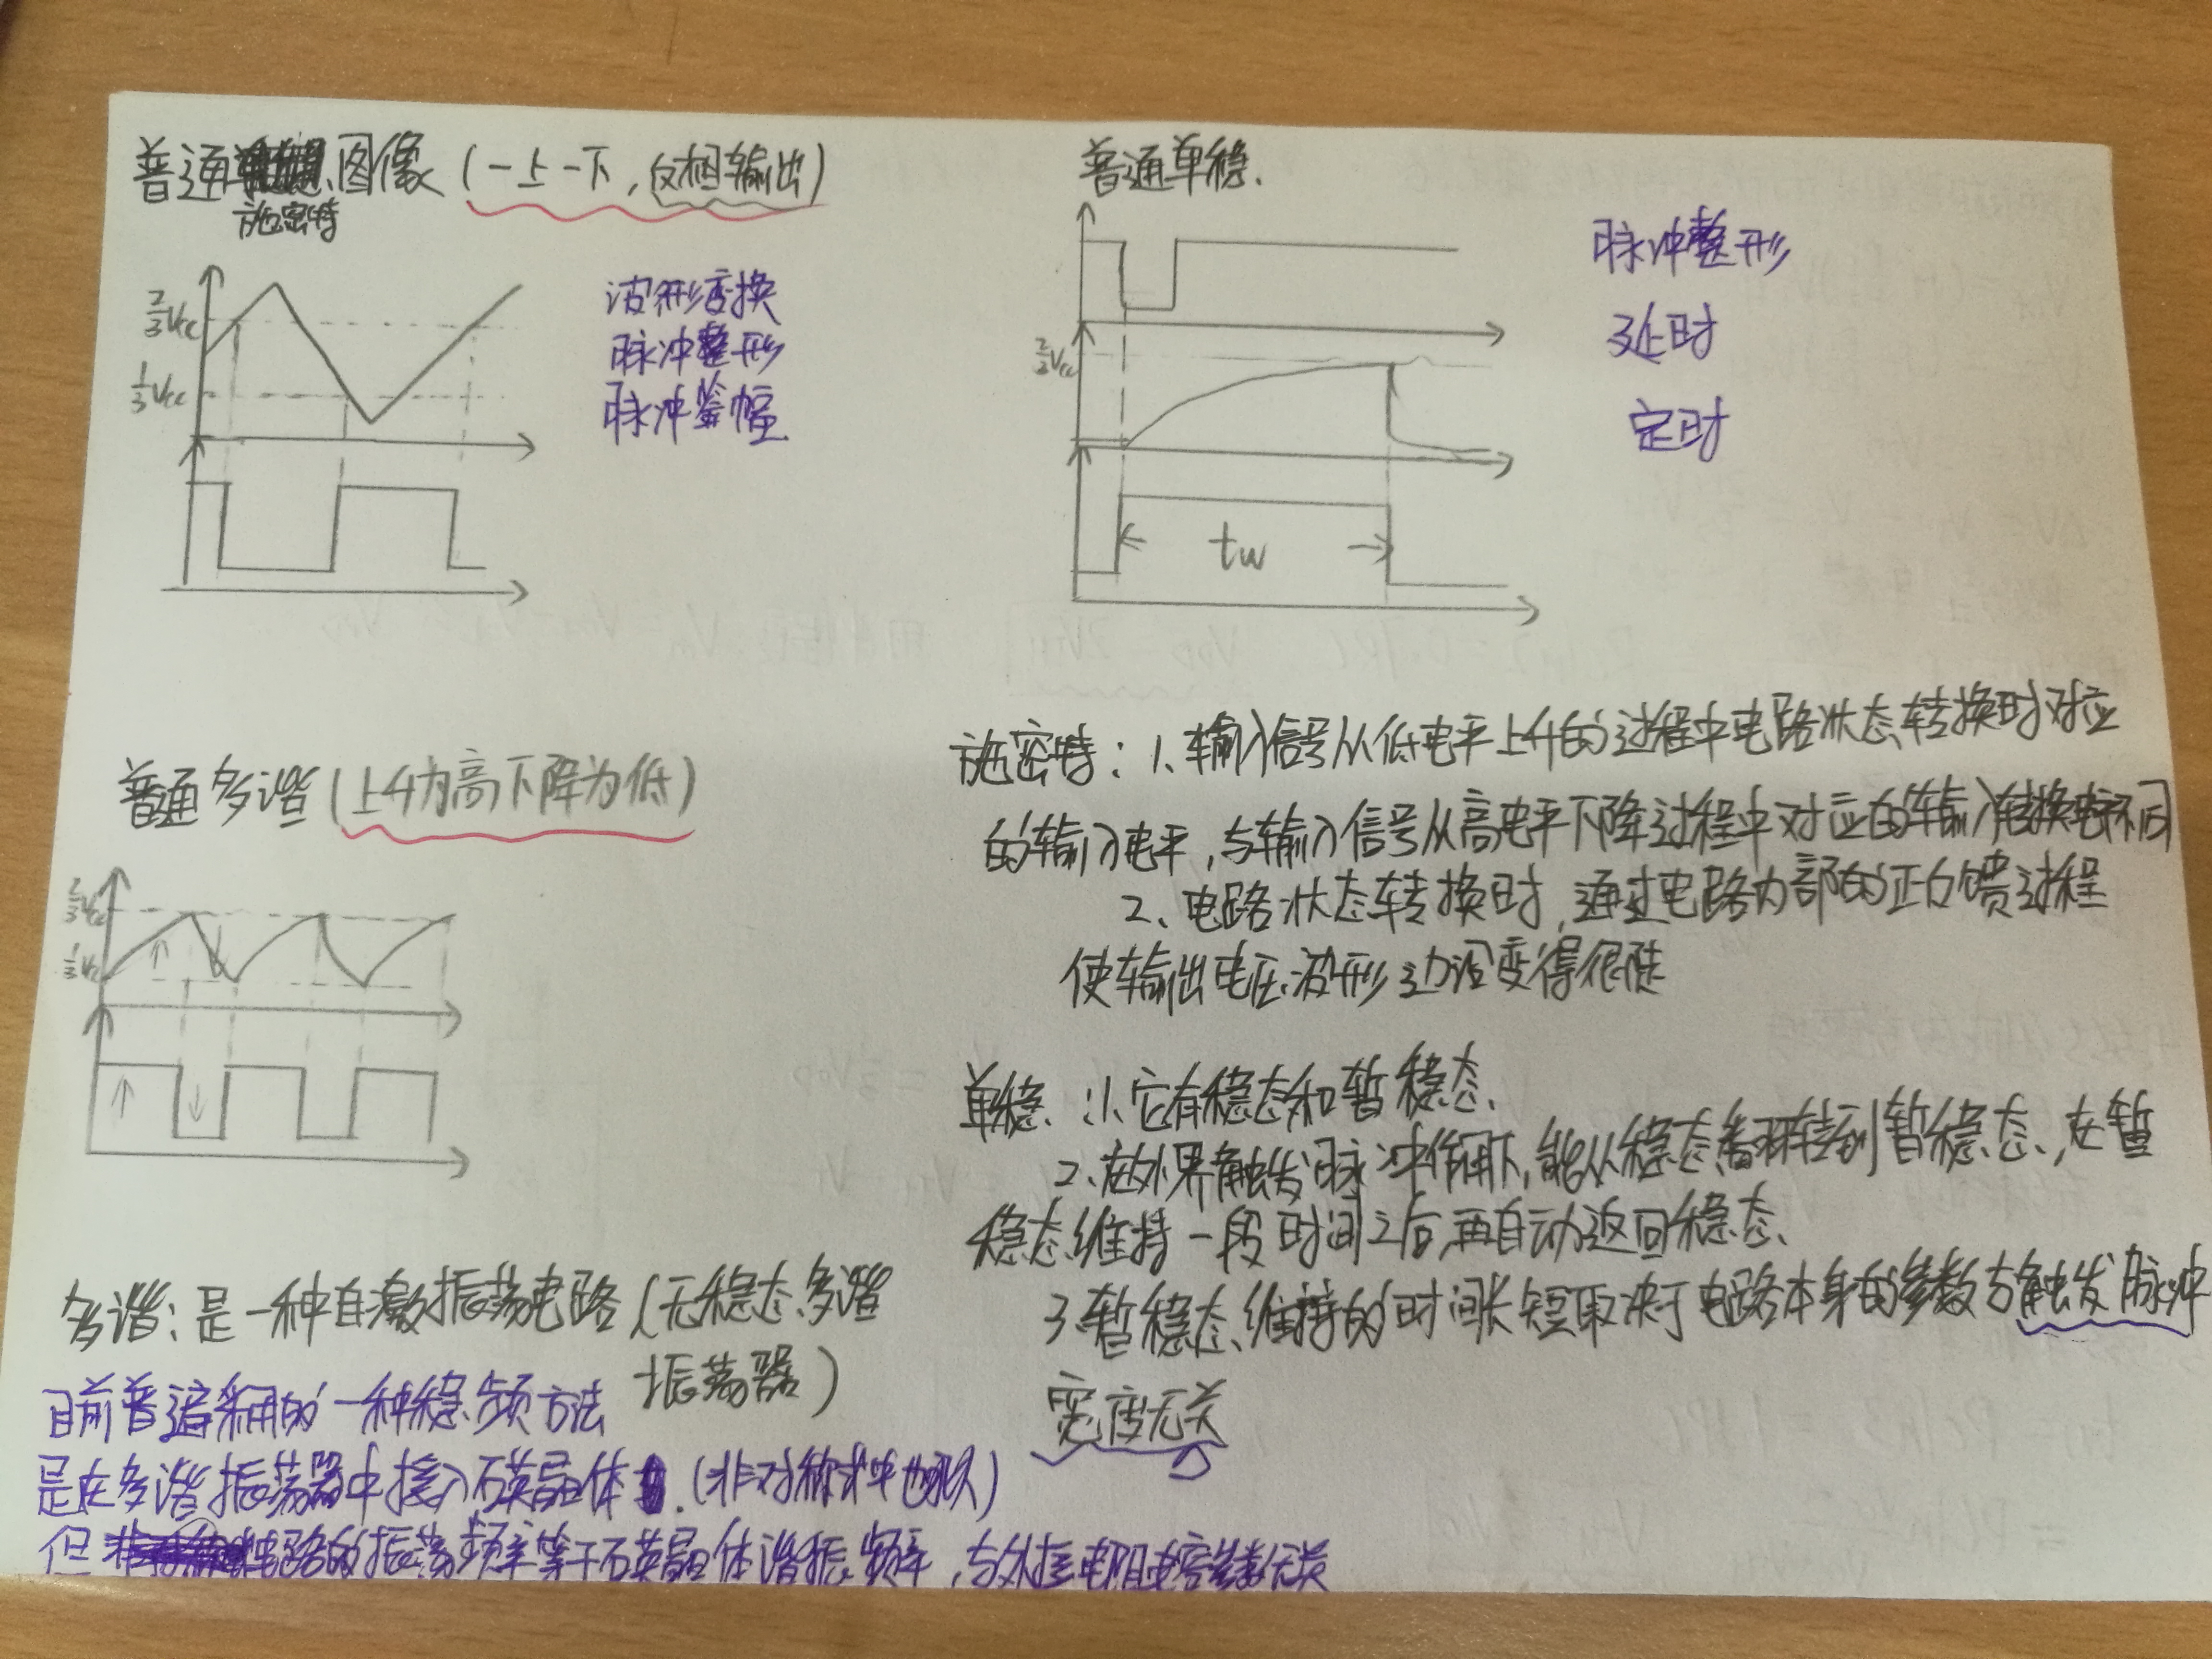 普通施密特图像(一上一下,反相输出)
2/3Vcc
1/3Vcc
波形变换
脉冲整形
脉冲鉴幅
普通单稳.
2/3Vcc
tw
脉冲整形
延时
定时
普通多谐(上升为高下降为低)
2/3Vcc
1/3Vcc
施密特:1、输入信号从低电平上升的过程中电路状态转换时对应
的输入电平,与输入信号从高电平下降过程中对应的输入转换电平不同
2、电路状态转换时,通过电路内部的正反馈过程
使输出电压波形边沿变得很陡
单稳:1、它有稳态和暂稳态、
2、在外界触发脉冲作用下,能从稳态翻转到暂稳态,在暂
稳态维持一段时间之后,再自动返回稳态、
3、暂稳态维持的时间长短取决于电路本身的参数与触发脉冲
宽度无关
多谐:是一种自激振荡电路(无稳态多谐
振荡器)
目前普遍采用的一种稳频方法
是在多谐振荡器中接入石英晶体.(非对称式中也可以)
但电路的振荡频率等于石英晶体谐振频率,与外接电阻电容参数无关